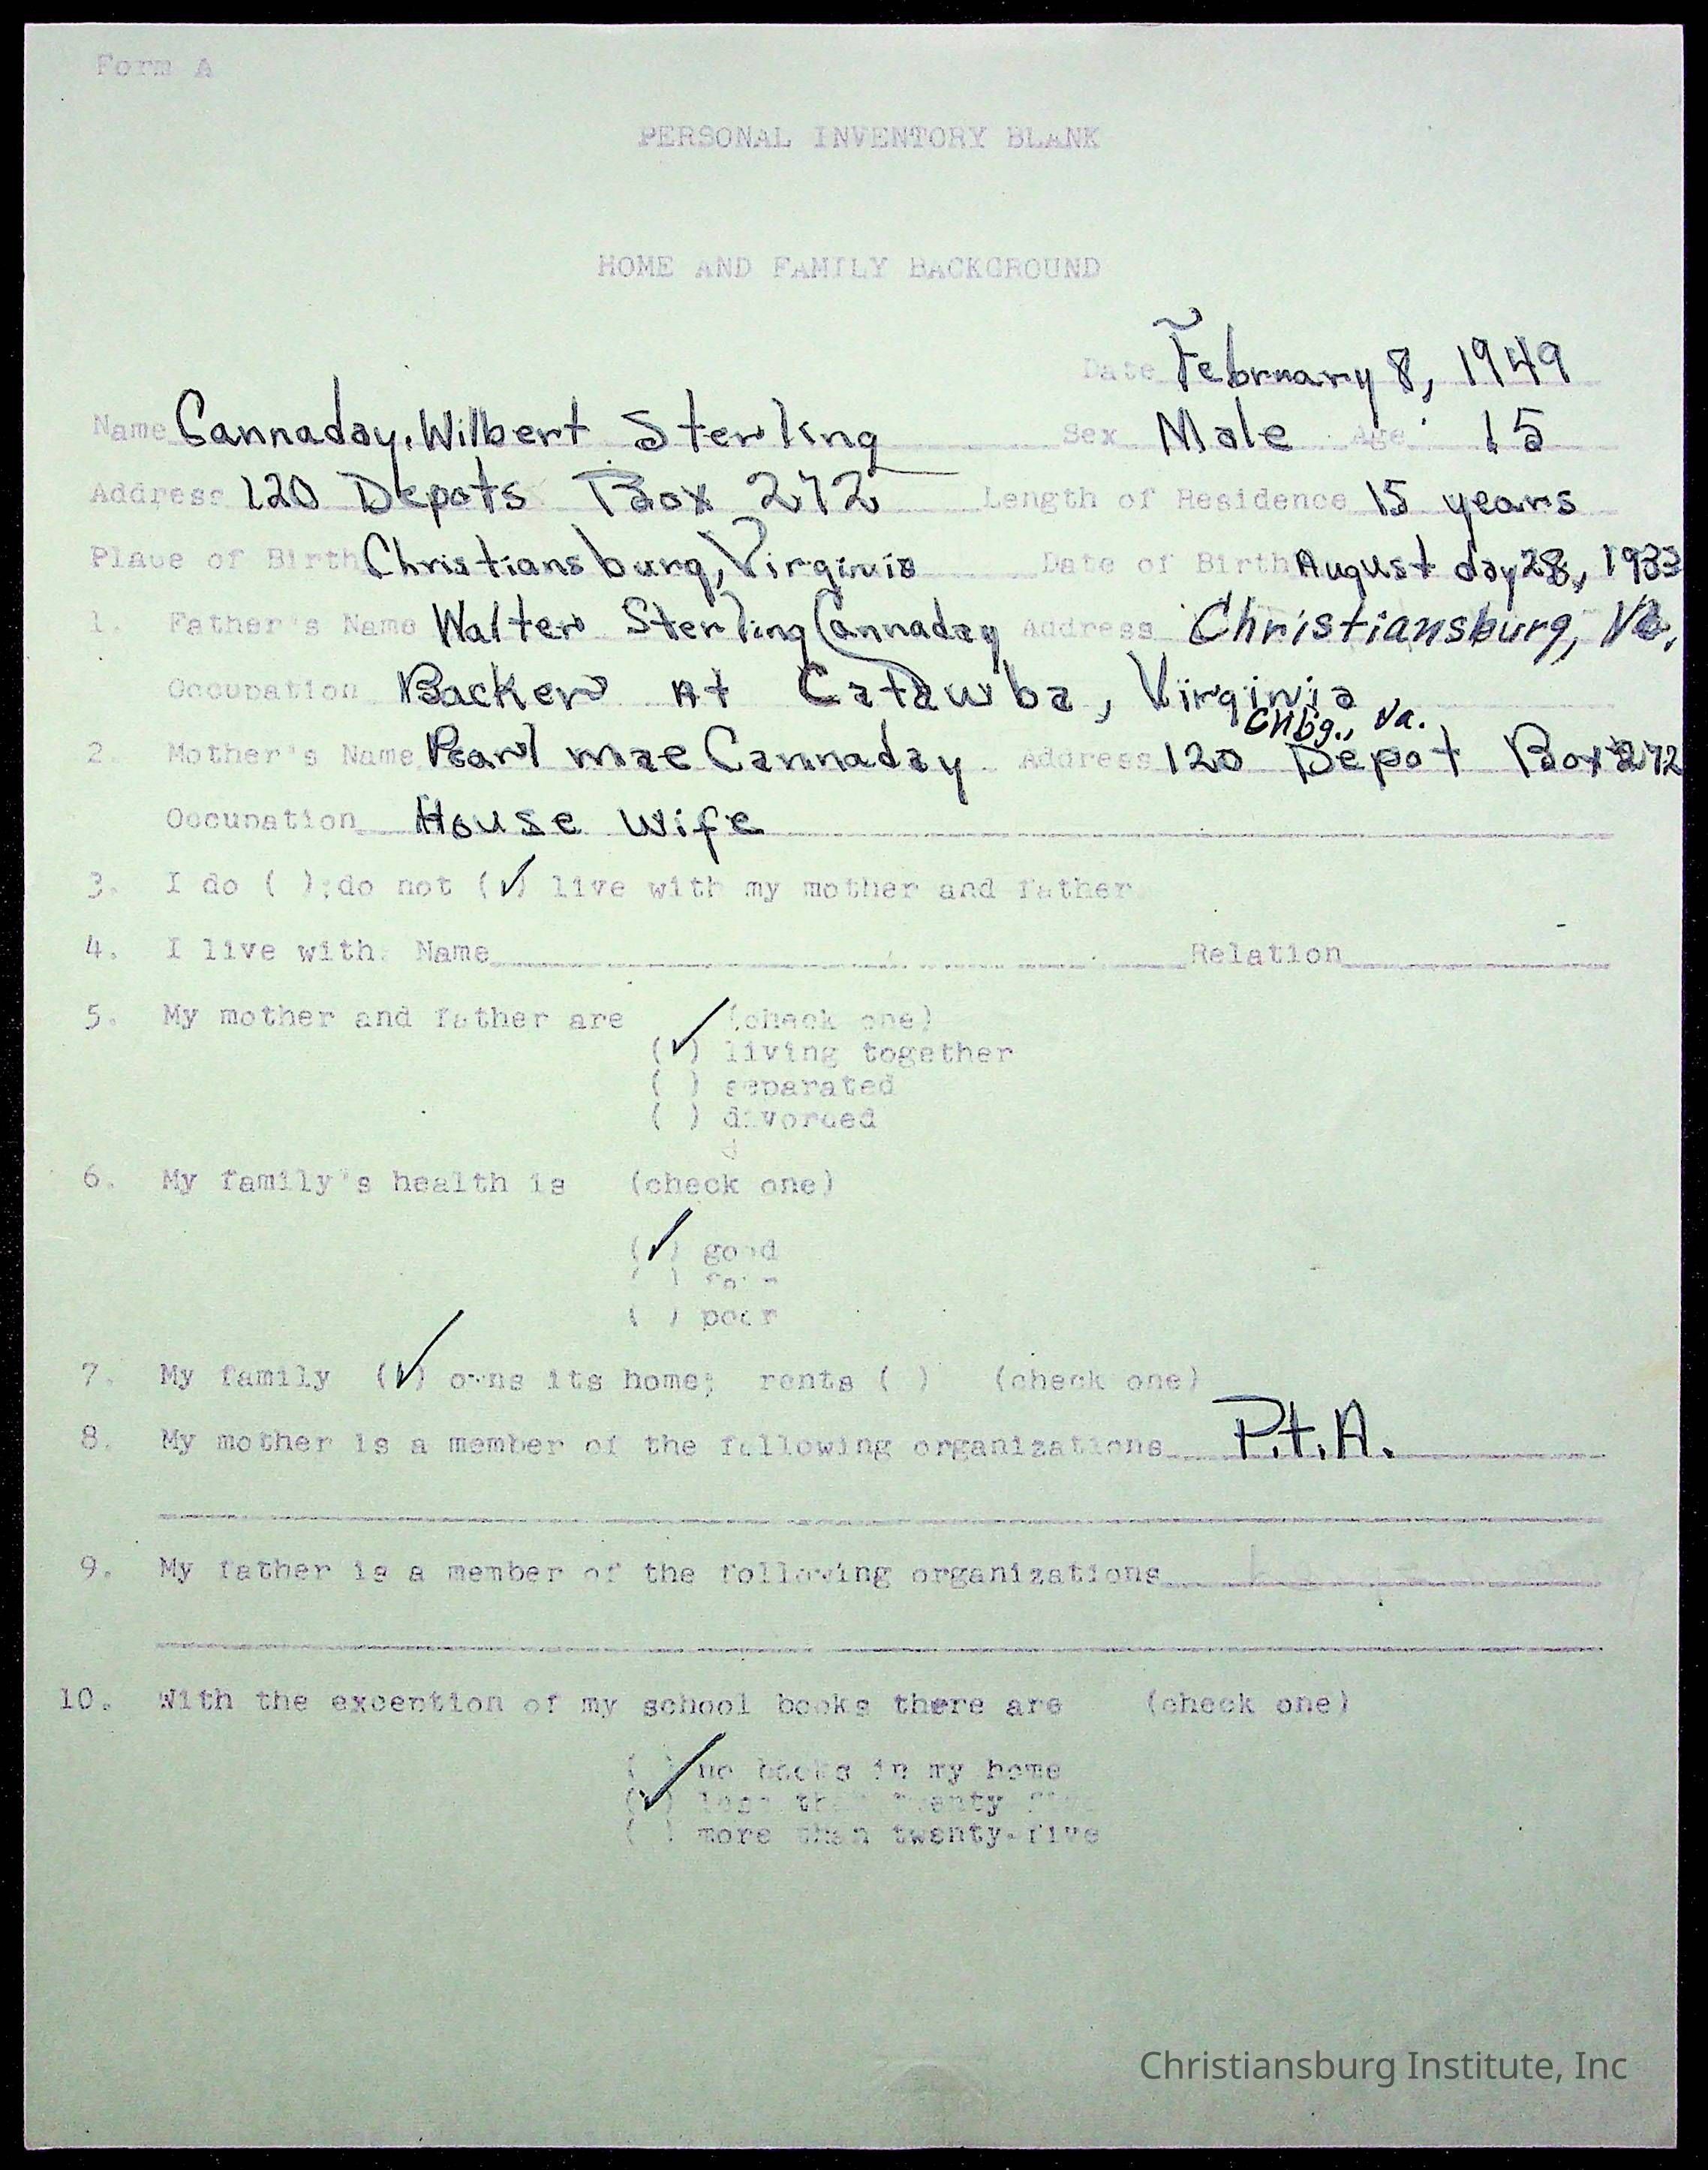 Form A
PERSONAL INVENTORY BLANK
HOME AND FAMILY BACKGROUND
Date February 8, 1949
Name Cannaday, Wilbert Sterling Sex Male Age 15
Address 120 Depots Box 272 Length of Residence 15 years
Place of Birth Christiansburg, Virginia Date of Birth August day 28, 1933
1. Father's Name Walter Sterling Cannaday Address Christiansburg, Va.
Occupation Backer At Catawba, Virginia
Chbg., Va.
2. Mother's Name Pearl mae Cannaday Address 120 Depot Box 272
Occupation House wife
3. I do ( ); do not (✓) live with my mother and father
4. I live with: Name Relation
5. My mother and father are (check one)
(✓) living together
( ) separated
( ) divorced
6. My family's health is (check one)
(✓) good
( )
( ) poor
7. My family (✓) owns its home; rents ( ) (check one)
8. My mother is a member of the following organizations P.t.A.
9. My father is a member of the following organizations
10. With the exception of my school books there are (check one)
( ) no books in my home
(✓) less than twenty five
( ) more than twenty-five
Christiansburg Institute, Inc